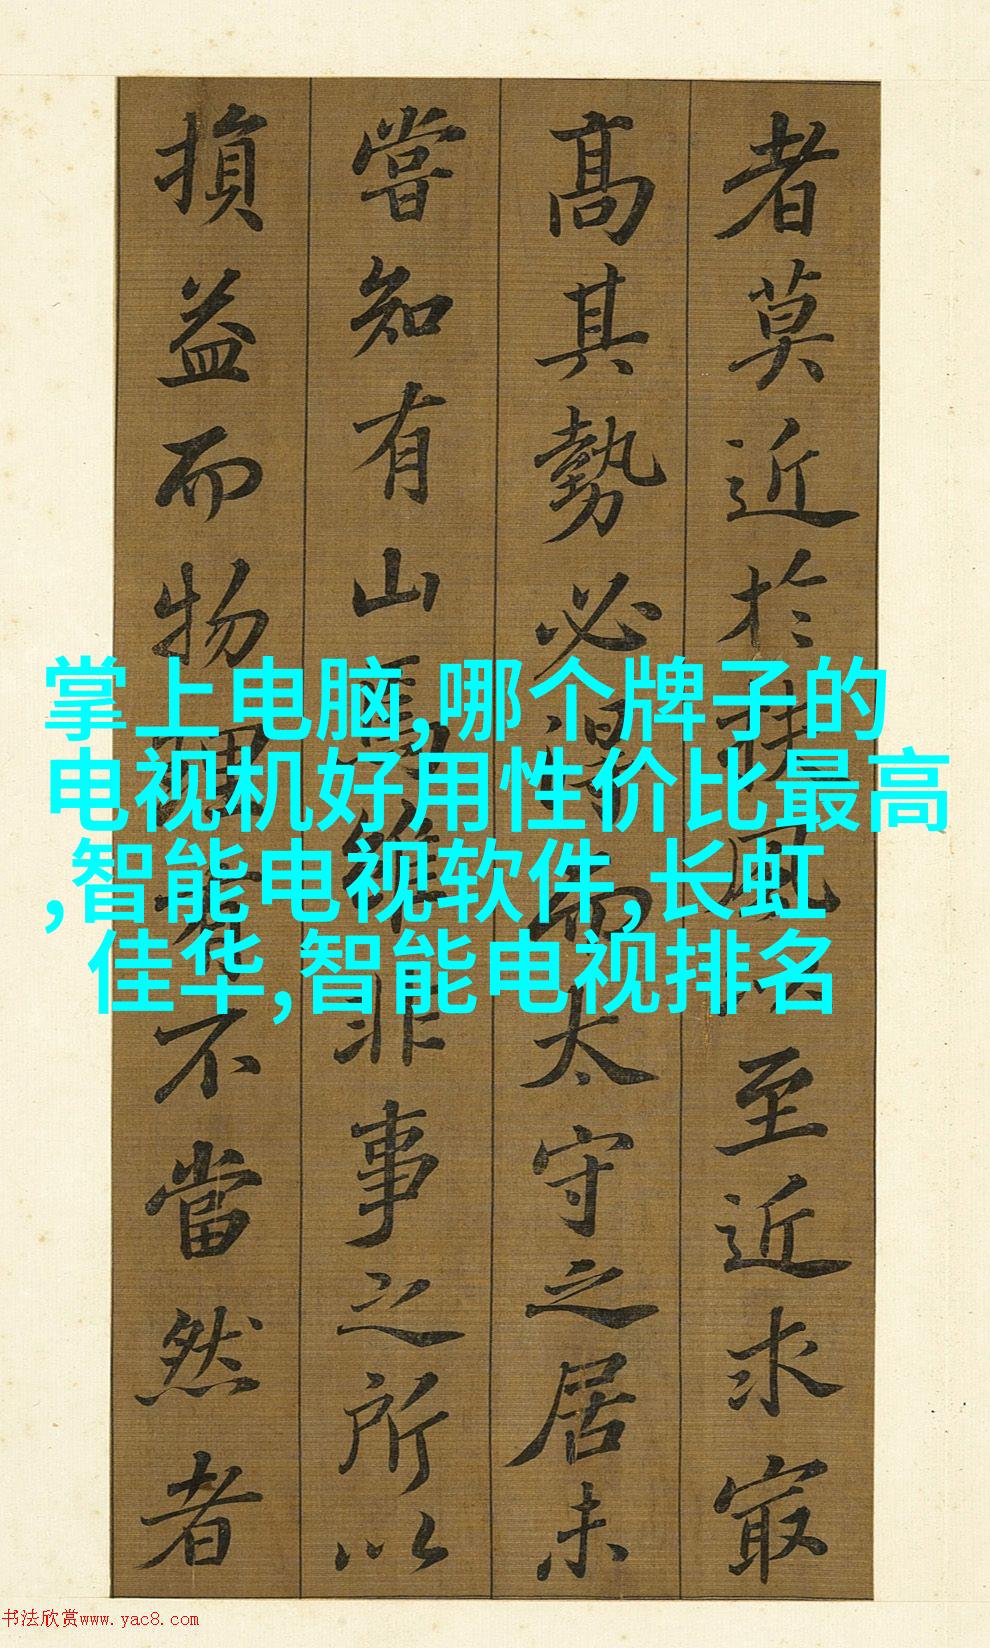 者莫近於扶風以至近求最
高其勢必得而太守之居未
嘗知有山焉雖非事之所以
損益而物理有不當然者
掌上电脑,哪个牌子的
电视机好用性价比最高
,智能电视软件,长虹
佳华,智能电视排名
书法欣赏www.yac8.com